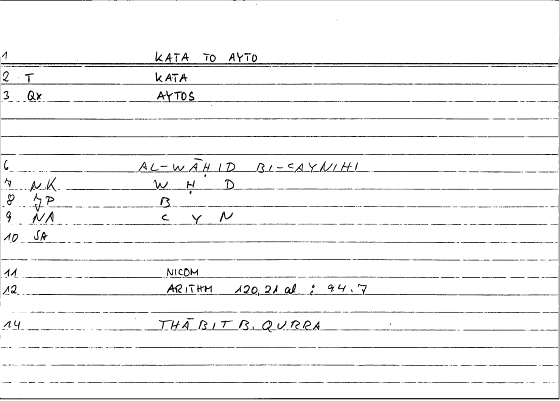 1 KATA TO AYTO
2 T KATA
3 Qx AYTOS
6 AL-WĀḤID BI-CAYNIHI
7 NK W Ḥ D
8 B
9 NA C Y N
10 SA
11 NICOM
12 ARITHM 120,21 al : 94.7
14 THĀBIT B. QURRA